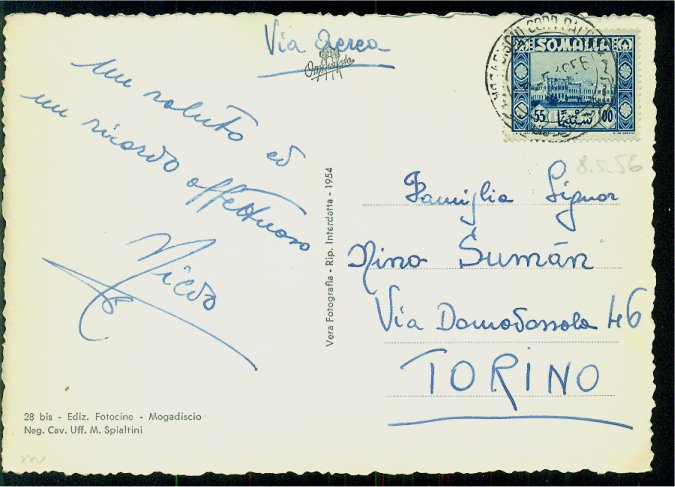 Via Aerea
un saluto ed
un ricordo affettuoso
SOMALIA
55
00
8.5.56
Famiglia Signor
Nino Sumán
Via Domodossola 46
TORINO
Vera Fotografia - Rip. Interdetta - 1954
28 bis - Ediz. Fotocine - Mogadiscio
Neg. Cav. Uff. M. Spialtini